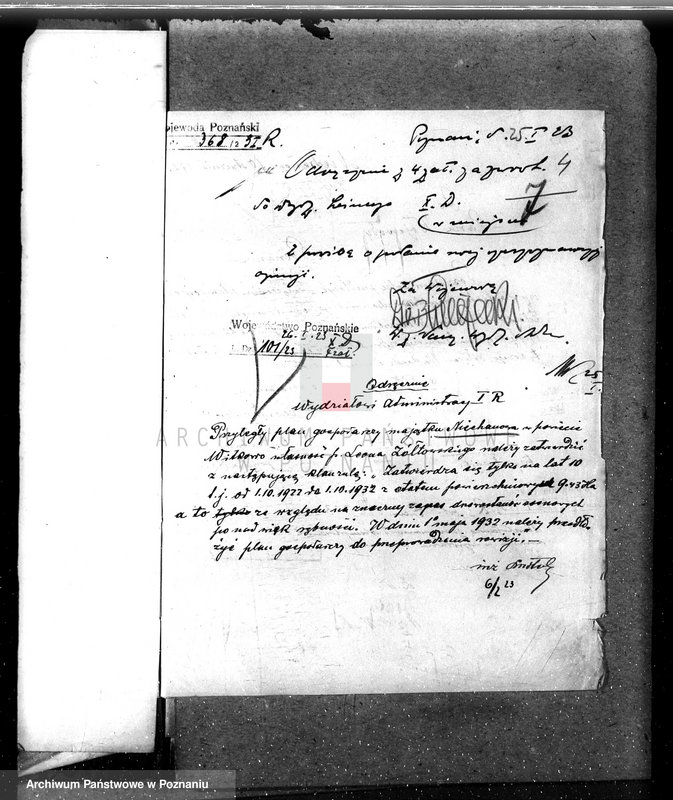 Wojewoda Poznański
368/2 R.
Poznań, d. 25 I 23
Odręcznie z 4 zał. za zwrot. 4
do Wydz. Leśnego X. D.
w miejscu
7
z prośbą o podanie swej
opinji.
Za Wojewodę
Województwo Poznańskie
26. I. 23 X D
L. Dz. 101/23 4 zał.
25
I.
Odręcznie
Wydziałowi Administracji I R
Przyległy plan gospodarczy majątku Niechanowo w powiecie
Witkowo własność p. Leona Żółtowskiego należy zatwierdzić
z następującą klauzulą: „Zatwierdza się tylko na lat 10
t. j. od 1.10.1922 do 1.10.1932 z etatem powierzchniowym 9.43 ha
a to tylko ze względu na znaczny zapas drzewostanów sosnowych
ponad wiek rębności. W dniu 1 maja 1932 należy przedło-
żyć plan gospodarczy do przeprowadzenia rewizji."—
inż.
6/2 23
ARCHIWUM PAŃSTWOWE
W POZNANIU
Archiwum Państwowe w Poznaniu